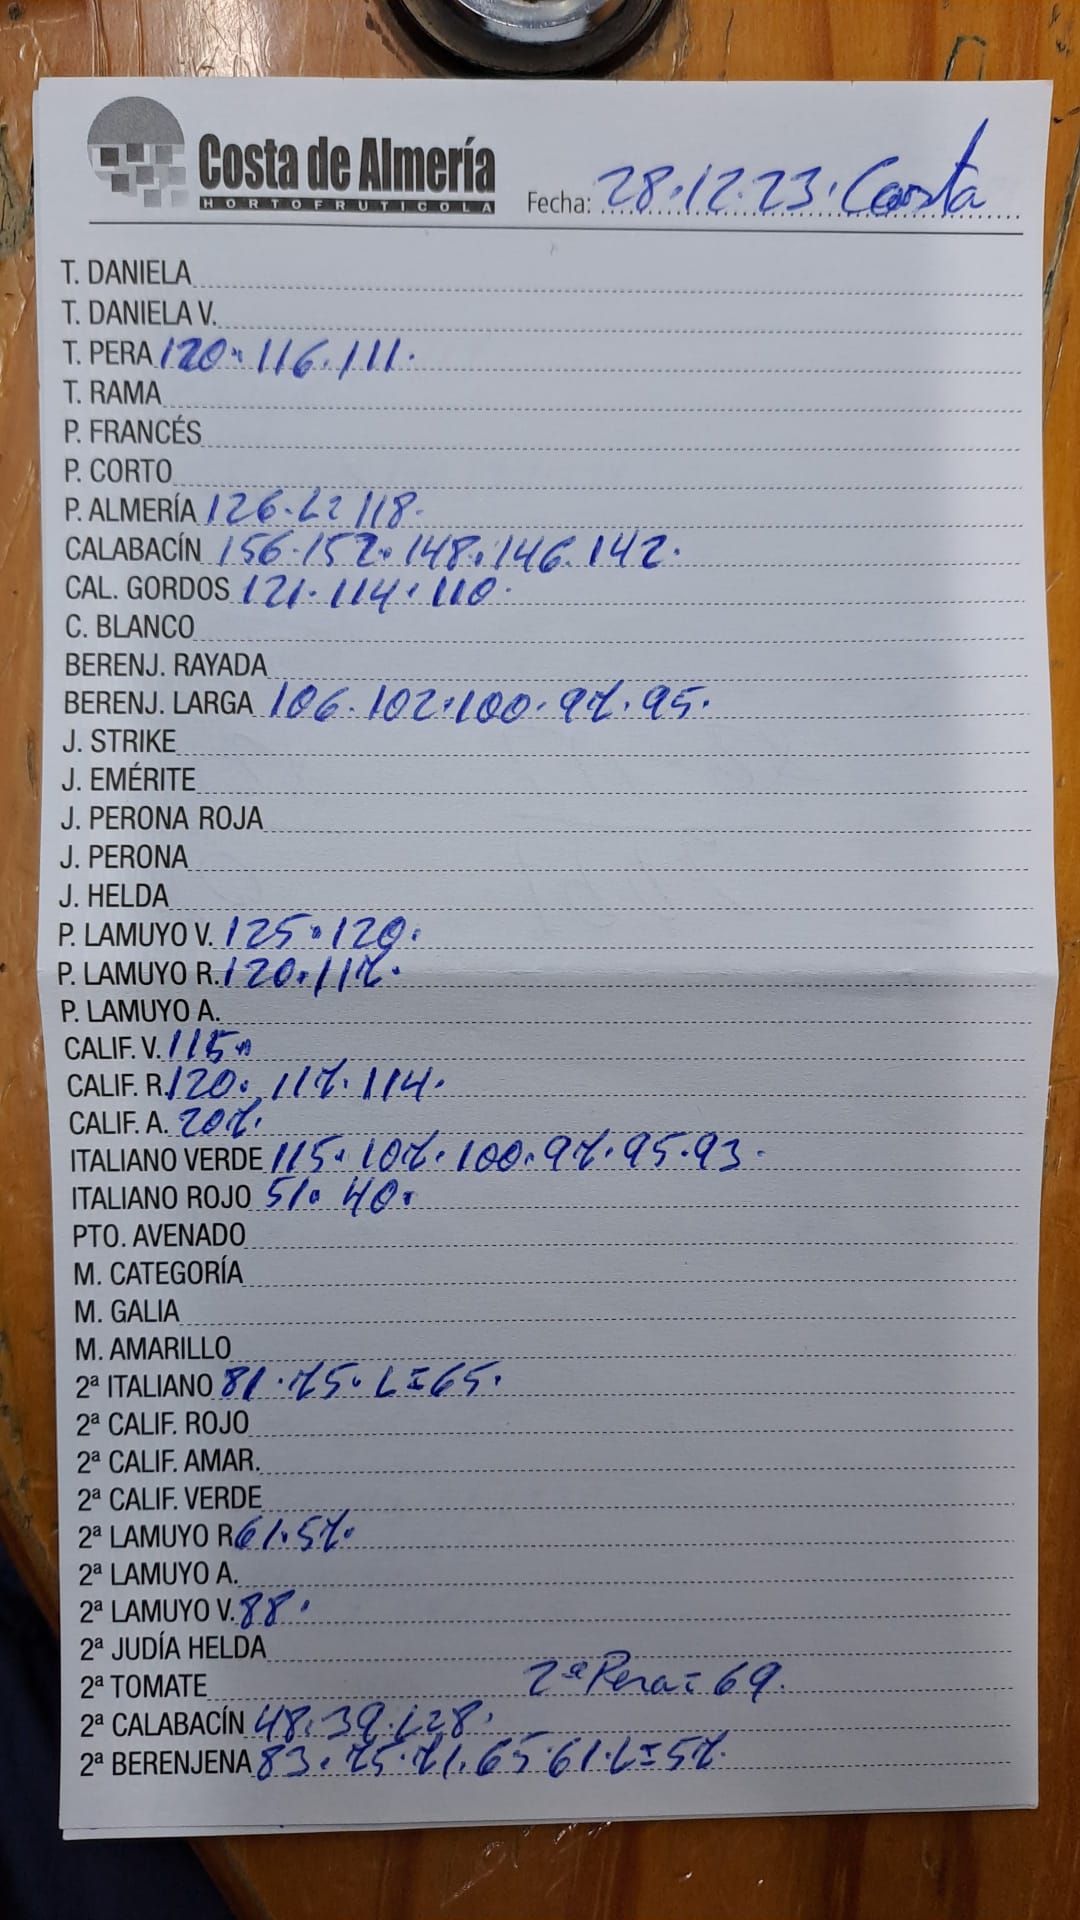 Costa de Almería
HORTOFRUTICOLA
Fecha: 28.12.23. Costa
T. DANIELA
T. DANIELA V.
T. PERA 120. 116. 111.
T. RAMA
P. FRANCÉS
P. CORTO
P. ALMERÍA 126. L= 118.
CALABACÍN 156. 152. 148. 146. 142.
CAL. GORDOS 121. 114. 110.
C. BLANCO
BERENJ. RAYADA
BERENJ. LARGA 106. 102. 100. 97. 95.
J. STRIKE
J. EMÉRITE
J. PERONA ROJA
J. PERONA
J. HELDA
P. LAMUYO V. 125. 120.
P. LAMUYO R. 120. 117.
P. LAMUYO A.
CALIF. V. 115.
CALIF. R. 120. 117. 114.
CALIF. A. 207.
ITALIANO VERDE 115. 107. 100. 97. 95. 93.
ITALIANO ROJO 51. 40.
PTO. AVENADO
M. CATEGORÍA
M. GALIA
M. AMARILLO
2ª ITALIANO 81. 75. L=65.
2ª CALIF. ROJO
2ª CALIF. AMAR.
2ª CALIF. VERDE
2ª LAMUYO R 61. 57.
2ª LAMUYO A.
2ª LAMUYO V. 88.
2ª JUDÍA HELDA
2ª TOMATE 2ª Pera = 69.
2ª CALABACÍN 48. 39. L=28.
2ª BERENJENA 83. 75. 71. 65. 61. L=57.